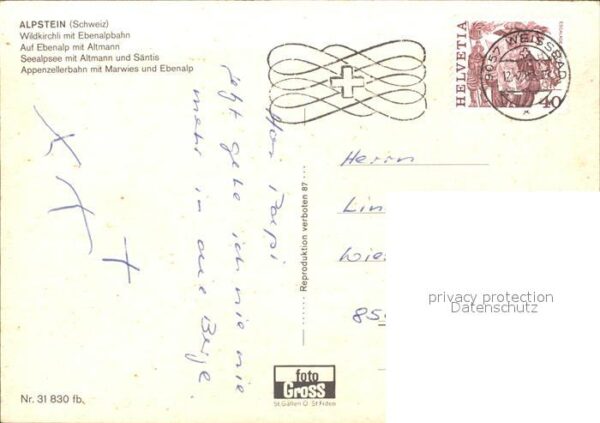 ALPSTEIN (Schweiz)
Wildkirchli mit Ebenalpbahn
Auf Ebenalp mit Altmann
Seealpsee mit Altmann und Säntis
Appenzellerbahn mit Marwies und Ebenalp
HELVETIA
40
9057 WEISSBAD
Hoi Papi
jetzt gehe ich nie nie
mehr in die Berge.
Reproduktion verboten 87
Herrn
Lin
Wie
85
privacy protection
Datenschutz
foto
Gross
St.Gallen O St.Fiden
Nr. 31 830 fb